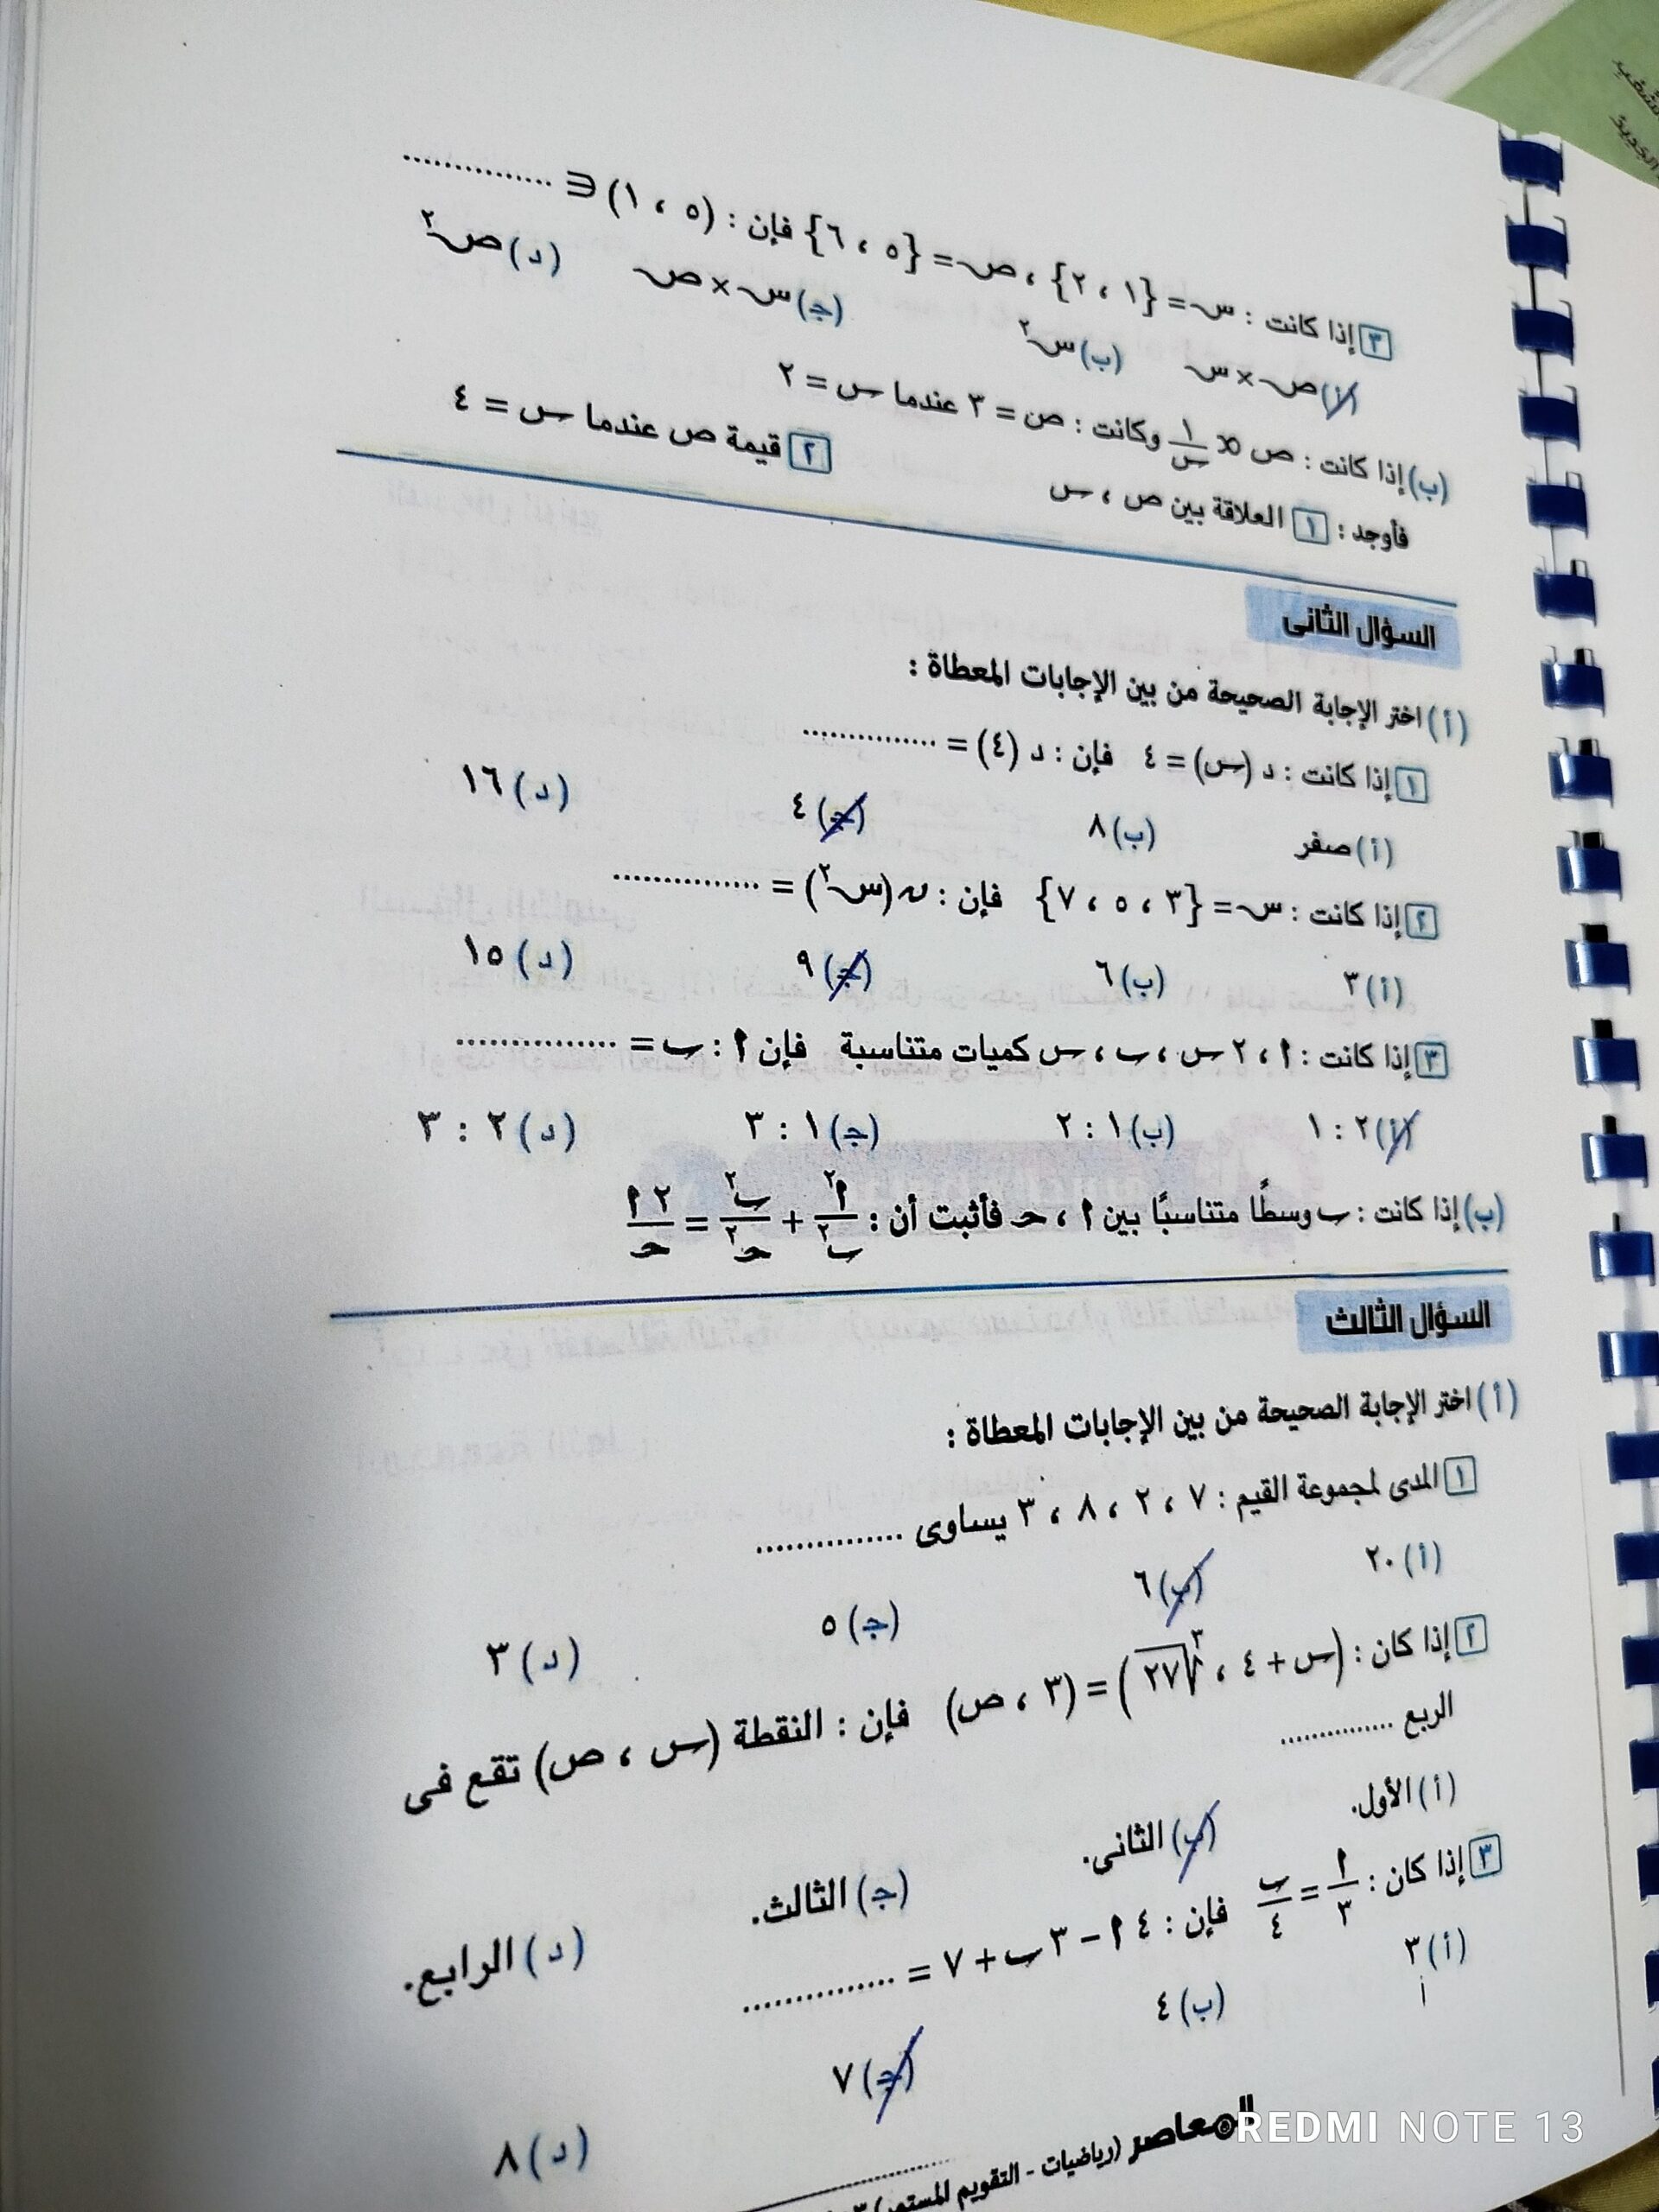 ٣ إذا كانت : س = {١ ، ٢} ، ص = {٥ ، ٦} فإن : (٥ ، ١) ∈ ...............
(أ) ص × س (ب) س٢ (ج) س × ص (د) ص٢
(ب) إذا كانت : ص ∝ ١/س وكانت : ص = ٣ عندما س = ٢
فأوجد : ١ العلاقة بين ص ، س ٢ قيمة ص عندما س = ٤
السؤال الثانى
(أ) اختر الإجابة الصحيحة من بين الإجابات المعطاة :
١ إذا كانت : د (س) = ٤ فإن : د (٤) = ...............
(أ) صفر (ب) ٨ (ج) ٤ (د) ١٦
٢ إذا كانت : س = {٣ ، ٥ ، ٧} فإن : ن (س٢) = ...............
(أ) ٣ (ب) ٦ (ج) ٩ (د) ١٥
٣ إذا كانت : أ ، ٢ س ، ب ، س كميات متناسبة فإن أ : ب = ...............
(أ) ٢ : ١ (ب) ١ : ٢ (ج) ١ : ٣ (د) ٢ : ٣
(ب) إذا كانت : ب وسطًا متناسبًا بين أ ، حـ فأثبت أن : أ٢/ب٢ + ب٢/حـ٢ = ٢ أ/حـ
السؤال الثالث
(أ) اختر الإجابة الصحيحة من بين الإجابات المعطاة :
١ المدى لمجموعة القيم : ٧ ، ٢ ، ٨ ، ٣ يساوى ...............
(أ) ٢٠ (ب) ٦ (ج) ٥ (د) ٣
٢ إذا كان : (س + ٤ ، ∛٢٧) = (٣ ، ص) فإن : النقطة (س ، ص) تقع فى
الربع ..............
(أ) الأول. (ب) الثانى. (ج) الثالث. (د) الرابع.
٣ إذا كان : أ/٣ = ب/٤ فإن : ٤ أ - ٣ ب + ٧ = ...............
(أ) ٣ (ب) ٤ (ج) ٧ (د) ٨
المعاصر (رياضيات - التقويم المستمر) ٣
REDMI NOTE 13